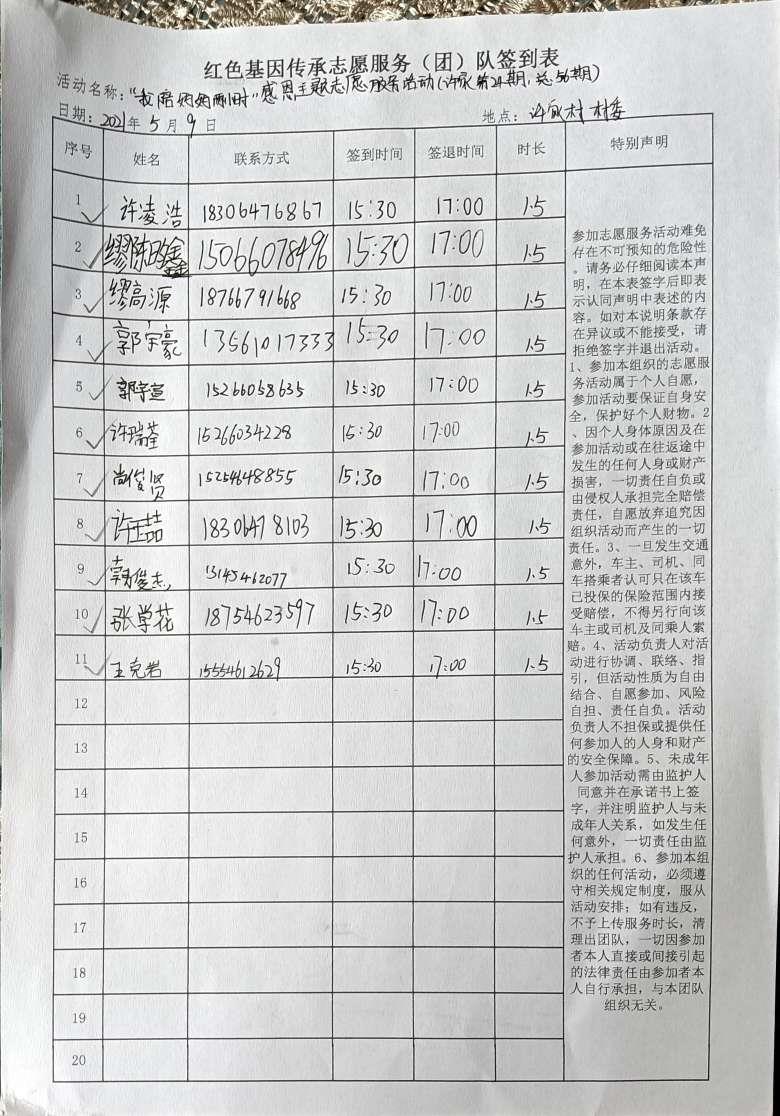 红色基因传承志愿服务（团）队签到表
活动名称："我陪妈妈 时"感恩主题志愿服务活动(许家第24期,总56期)
日期：2021年5月9日 地点：许家村 村委
序号 姓名 联系方式 签到时间 签退时间 时长 特别声明
1 许凌浩 18306476867 15:30 17:00 1.5
2 缪陈 鑫 15066078496 15:30 17:00 1.5
3 缪高源 18766791668 15:30 17:00 1.5
4 郭宇豪 13561017333 15:30 17:00 1.5
5 郭宇宣 15266058635 15:30 17:00 1.5
6 许瑞荃 15266034228 15:30 17:00 1.5
7 尚俊贤 15254648855 15:30 17:00 1.5
8 许 喆 18306478103 15:30 17:00 1.5
9 俊杰 13145462077 15:30 17:00 1.5
10 张学花 18754623597 15:30 17:00 1.5
11 王克岩 15554612629 15:30 17:00 1.5
12
13
14
15
16
17
18
19
20
参加志愿服务活动难免
存在不可预知的危险性
。请务必仔细阅读本声
明，在本表签字后即表
示认同声明中表述的内
容。如对本说明条款存
在异议或不能接受，请
拒绝签字并退出活动。
1、参加本组织的志愿服
务活动属于个人自愿，
参加活动要保证自身安
全，保护好个人财物。2
、因个人身体原因及在
参加活动或在往返途中
发生的任何人身或财产
损害，一切责任自负或
由侵权人承担完全赔偿
责任，自愿放弃追究因
组织活动而产生的一切
责任。3、一旦发生交通
意外，车主、司机、同
车搭乘者认可只在该车
已投保的保险范围内接
受赔偿，不得另行向该
车主或司机及同乘人索
赔。4、活动负责人对活
动进行协调、联络、指
引，但活动性质为自由
结合、自愿参加、风险
自担、责任自负。活动
负责人不担保或提供任
何参加人的人身和财产
的安全保障。5、未成年
人参加活动需由监护人
同意并在承诺书上签
字，并注明监护人与未
成年人关系，如发生任
何意外，一切责任由监
护人承担。6、参加本组
织的任何活动，必须遵
守相关规定制度，服从
活动安排；如有违反，
不予上传服务时长，清
理出团队，一切因参加
者本人直接或间接引起
的法律责任由参加者本
人自行承担，与本团队
组织无关。